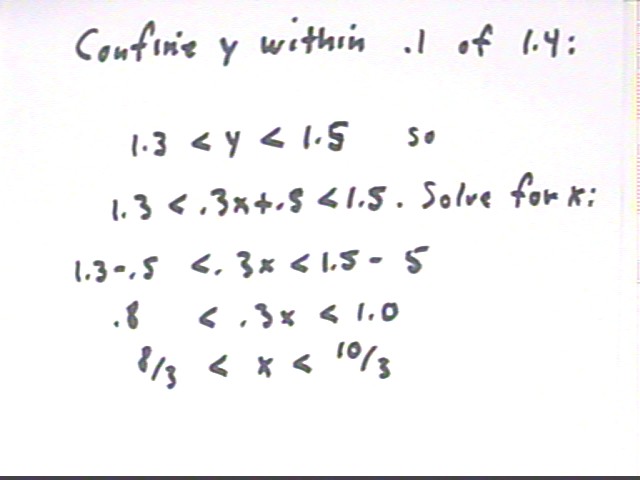 Confine y within .1 of 1.4:
1.3 < y < 1.5 so
1.3 < .3x+.5 < 1.5. Solve for x:
1.3-.5 < .3x < 1.5- 5
.8 < .3x < 1.0
8/3 < x < 10/3